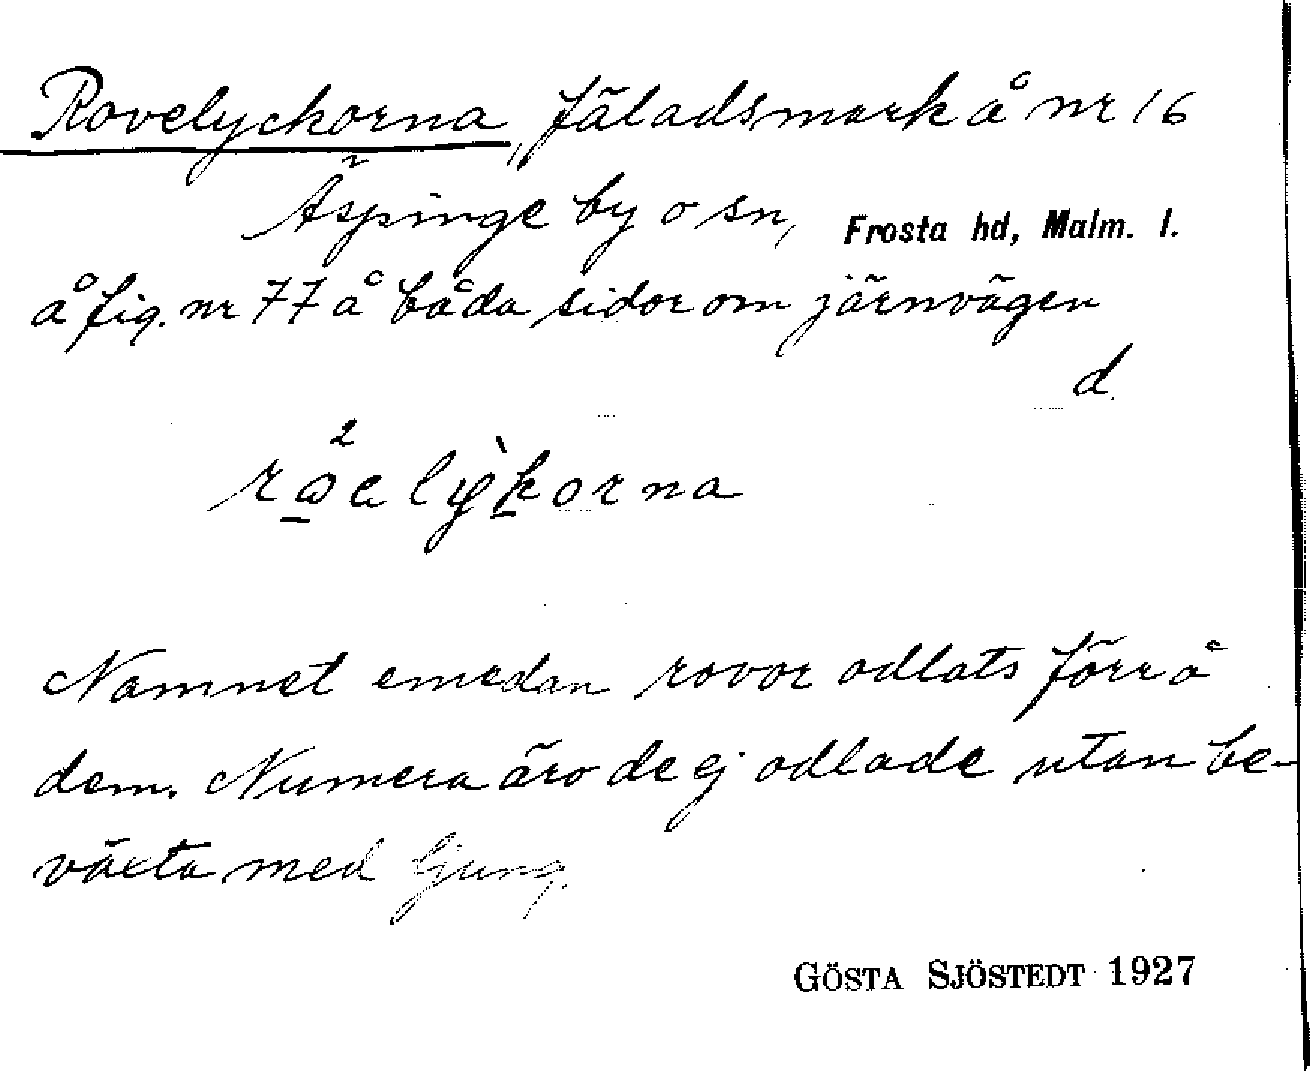 Rovelyckorna, fäladsmark å nr 16
Äspinge by o sn, Frosta hd, Malm. l.
å fig. nr 77 å båda sidor om järnvägen
d.
Namnet emedan rovor odlats förr å
dem. Numera äro de ej odlade utan be-
växta med ljung.
GÖSTA SJÖSTEDT 1927